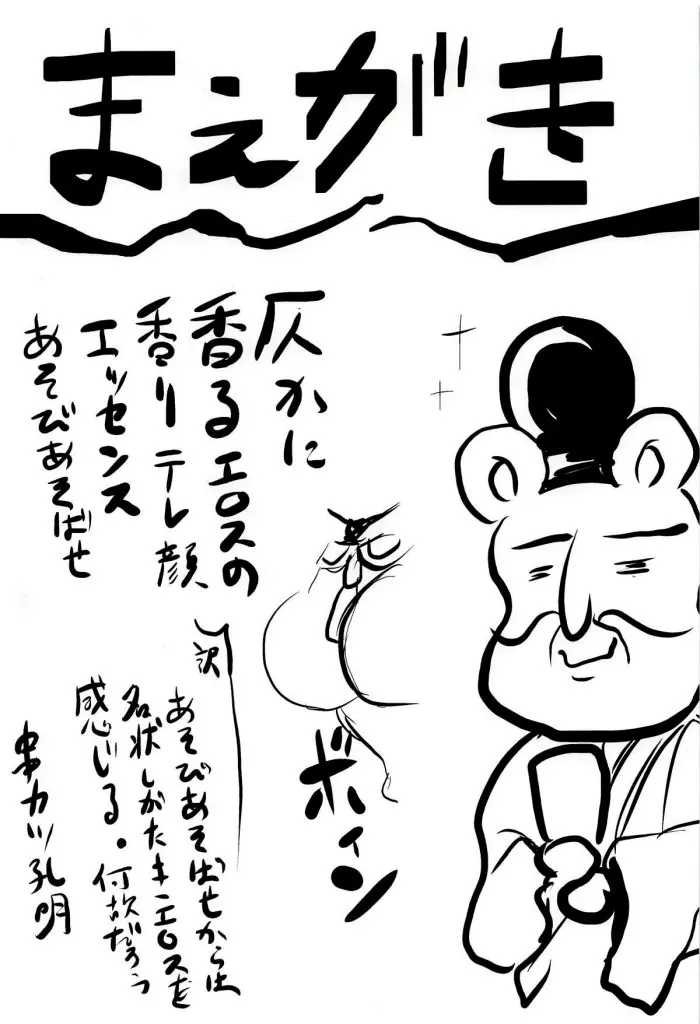 まえがき
仄かに
香るエロスの
香りテレ顔
エッセンス
あそびあそばせ
訳
あそびあそばせからは
名状しがたきエロスを
感じる。何故だろう
串カツ孔明
ボイン